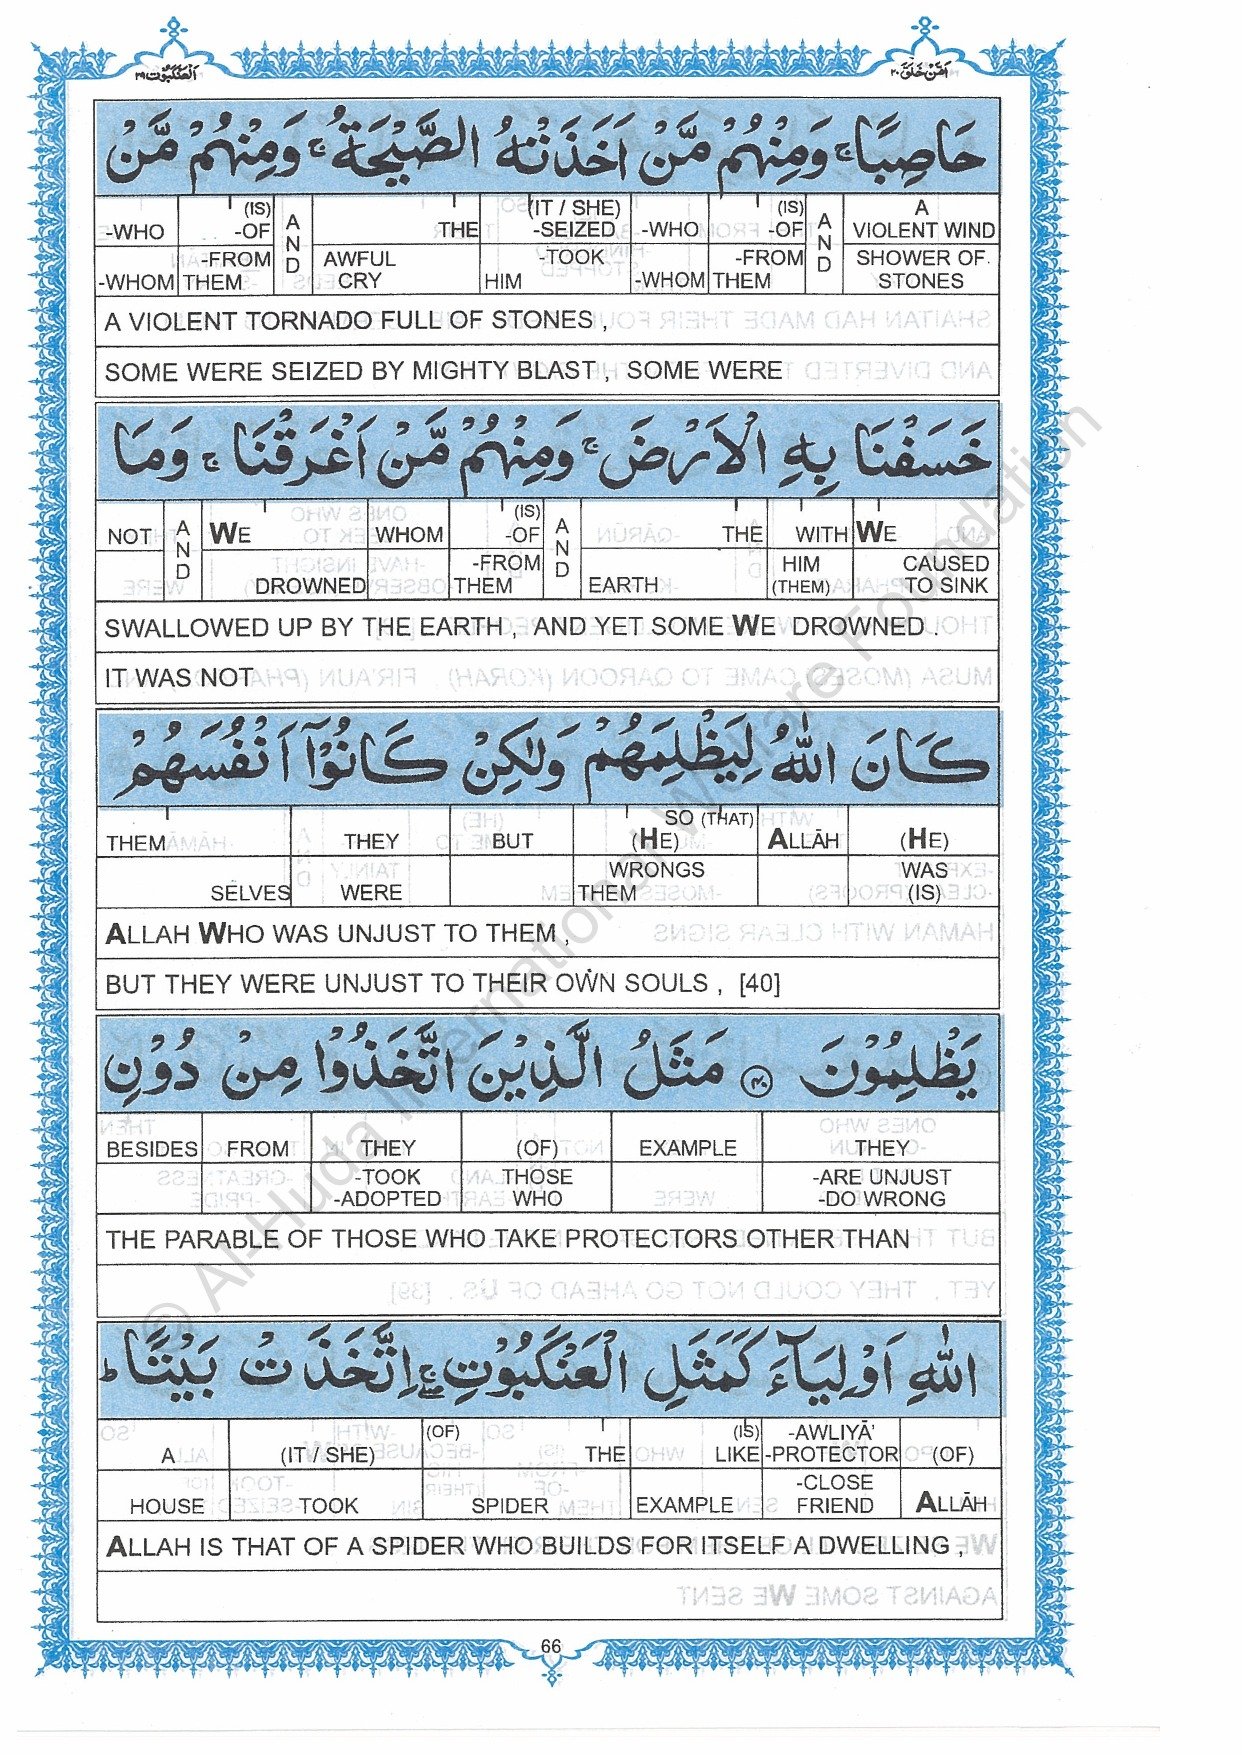 العنكبوت ٢٩
امن خلق ٢٠
حَاصِبًا ۚ وَمِنْهُمْ مَّنْ اَخَذَتْهُ الصَّيْحَةُ ۚ وَمِنْهُمْ مَّنْ
-WHO (IS) -OF AND THE (IT / SHE) -SEIZED -WHO (IS) -OF AND A VIOLENT WIND
-WHOM -FROM THEM AWFUL CRY -TOOK HIM -WHOM -FROM THEM SHOWER OF STONES
A VIOLENT TORNADO FULL OF STONES ,
SOME WERE SEIZED BY MIGHTY BLAST , SOME WERE
خَسَفْنَا بِهِ الْاَرْضَ ۚ وَمِنْهُمْ مَّنْ اَغْرَقْنَا ۚ وَمَا
NOT AND WE WHOM (IS) -OF AND THE WITH WE
DROWNED -FROM THEM EARTH HIM (THEM) CAUSED TO SINK
SWALLOWED UP BY THE EARTH , AND YET SOME WE DROWNED .
IT WAS NOT
كَانَ اللّٰهُ لِيَظْلِمَهُمْ وَلٰكِنْ كَانُوْٓا اَنْفُسَهُمْ
THEM THEY BUT SO (THAT) (HE) ALLĀH (HE)
SELVES WERE WRONGS THEM WAS (IS)
ALLAH WHO WAS UNJUST TO THEM ,
BUT THEY WERE UNJUST TO THEIR OWN SOULS , [40]
يَظْلِمُوْنَ ﴿٤٠﴾ مَثَلُ الَّذِيْنَ اتَّخَذُوْا مِنْ دُوْنِ
BESIDES FROM THEY (OF) EXAMPLE THEY
-TOOK -ADOPTED THOSE WHO -ARE UNJUST -DO WRONG
THE PARABLE OF THOSE WHO TAKE PROTECTORS OTHER THAN
اللّٰهِ اَوْلِيَآءَ كَمَثَلِ الْعَنْكَبُوْتِ ۚ اِتَّخَذَتْ بَيْتًا ؕ
A (IT / SHE) (OF) THE (IS) LIKE -AWLIYĀ' -PROTECTOR (OF)
HOUSE TOOK SPIDER EXAMPLE -CLOSE FRIEND ALLĀH
ALLAH IS THAT OF A SPIDER WHO BUILDS FOR ITSELF A DWELLING ,
66
© Al-Huda International Welfare Foundation